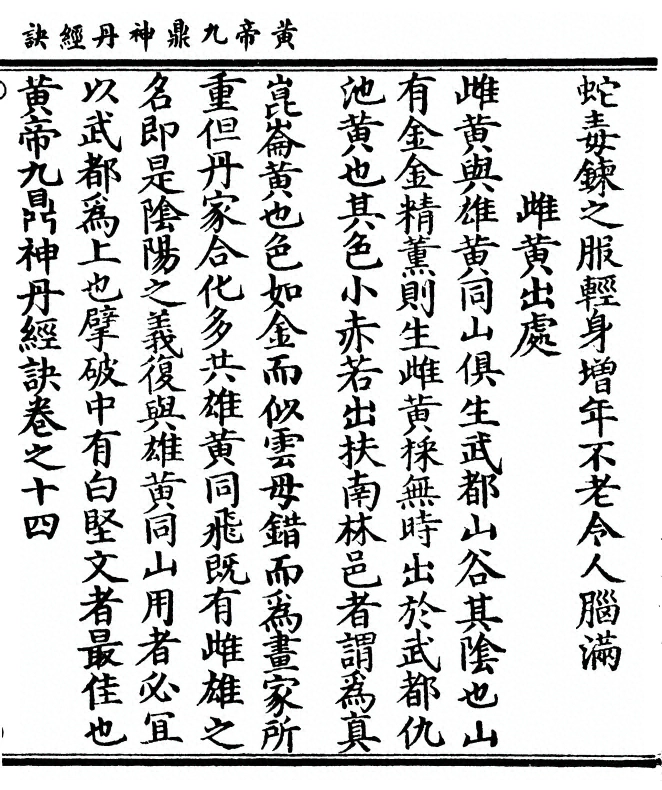 黃帝九鼎神丹經訣
蛇毒鍊之服輕身增年不老令人腦滿
雌黃出處
雌黃與雄黃同山俱生武都山谷其陰也山
有金金精薰則生雌黃採無時出於武都仇
池黃也其色小赤若出扶南林邑者謂為真
崑崙黃也色如金而似雲母錯而為畫家所
重但丹家合化多共雄黃同飛既有雌雄之
名即是陰陽之義復與雄黃同山用者必冝
以武都為上也擘破中有白堅文者最佳也
黃帝九鼎神丹經訣卷之十四